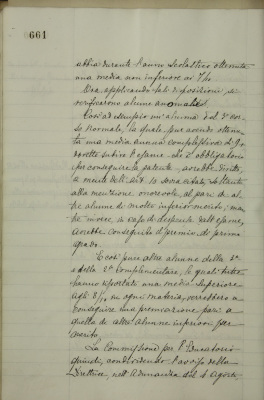 661
abbia durante l'anno scolastico ottenuta
una media non inferiore ai 7/10.
Ora applicando tali disposizioni, si
verificarono alcune anomalie.
Così ad esempio un'alunna del 3° cor-
so Normale, la quale, pur avendo ottenu-
ta una media annua complessiva di 9,
dovette subire l'esame che è obbligatorio
per conseguire la patente, avrebbe diritto,
a mente dell'art. 10 sovra citato, soltanto
alla menzione onorevole, al pari di al-
tre alunne di molto inferior merito, men-
tre invece, in caso di dispensa dall'esame,
avrebbe conseguito il premio di primo
grado.
E così pure altre alunne della 1ª
e della 2ª Complementare, le quali tutte
hanno riportato una media superiore
agli 8/10 in ogni materia, verrebbero a
conseguire una premiazione pari a
quella di altre alunne inferiori per
merito.
La Commissione per l'Educatorio
quindi, condividendo l'avviso della
Direttrice, nell'adunanza del 4 Agosto